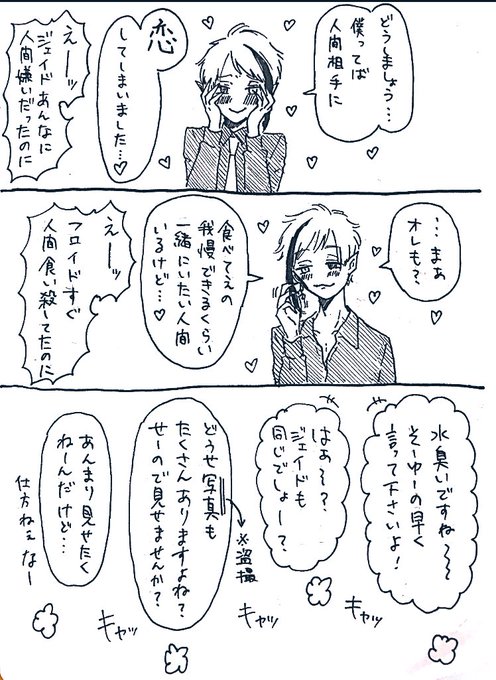 どうしましょう…
僕ってば
人間相手に
恋
してしまいました…♥
えーーッ
ジェイドあんなに
人間嫌いだったのに
…まぁ
オレも?
食べてえの
我慢できるくらい
一緒にいたい人間
いるけど…♥
えーッ
フロイドすぐ
人間食い殺してたのに
水臭いですね～～
そーゆーの早く
言って下さいよ!
はぁ～?
ジェイドも
同じでしょー?
どうせ写真も
たくさんありますよね?
せーので見せませんか?
※盗撮
あんまり見せたく
ねーんだけど…
仕方ねぇなー
キャッ
キャッ
キャッ